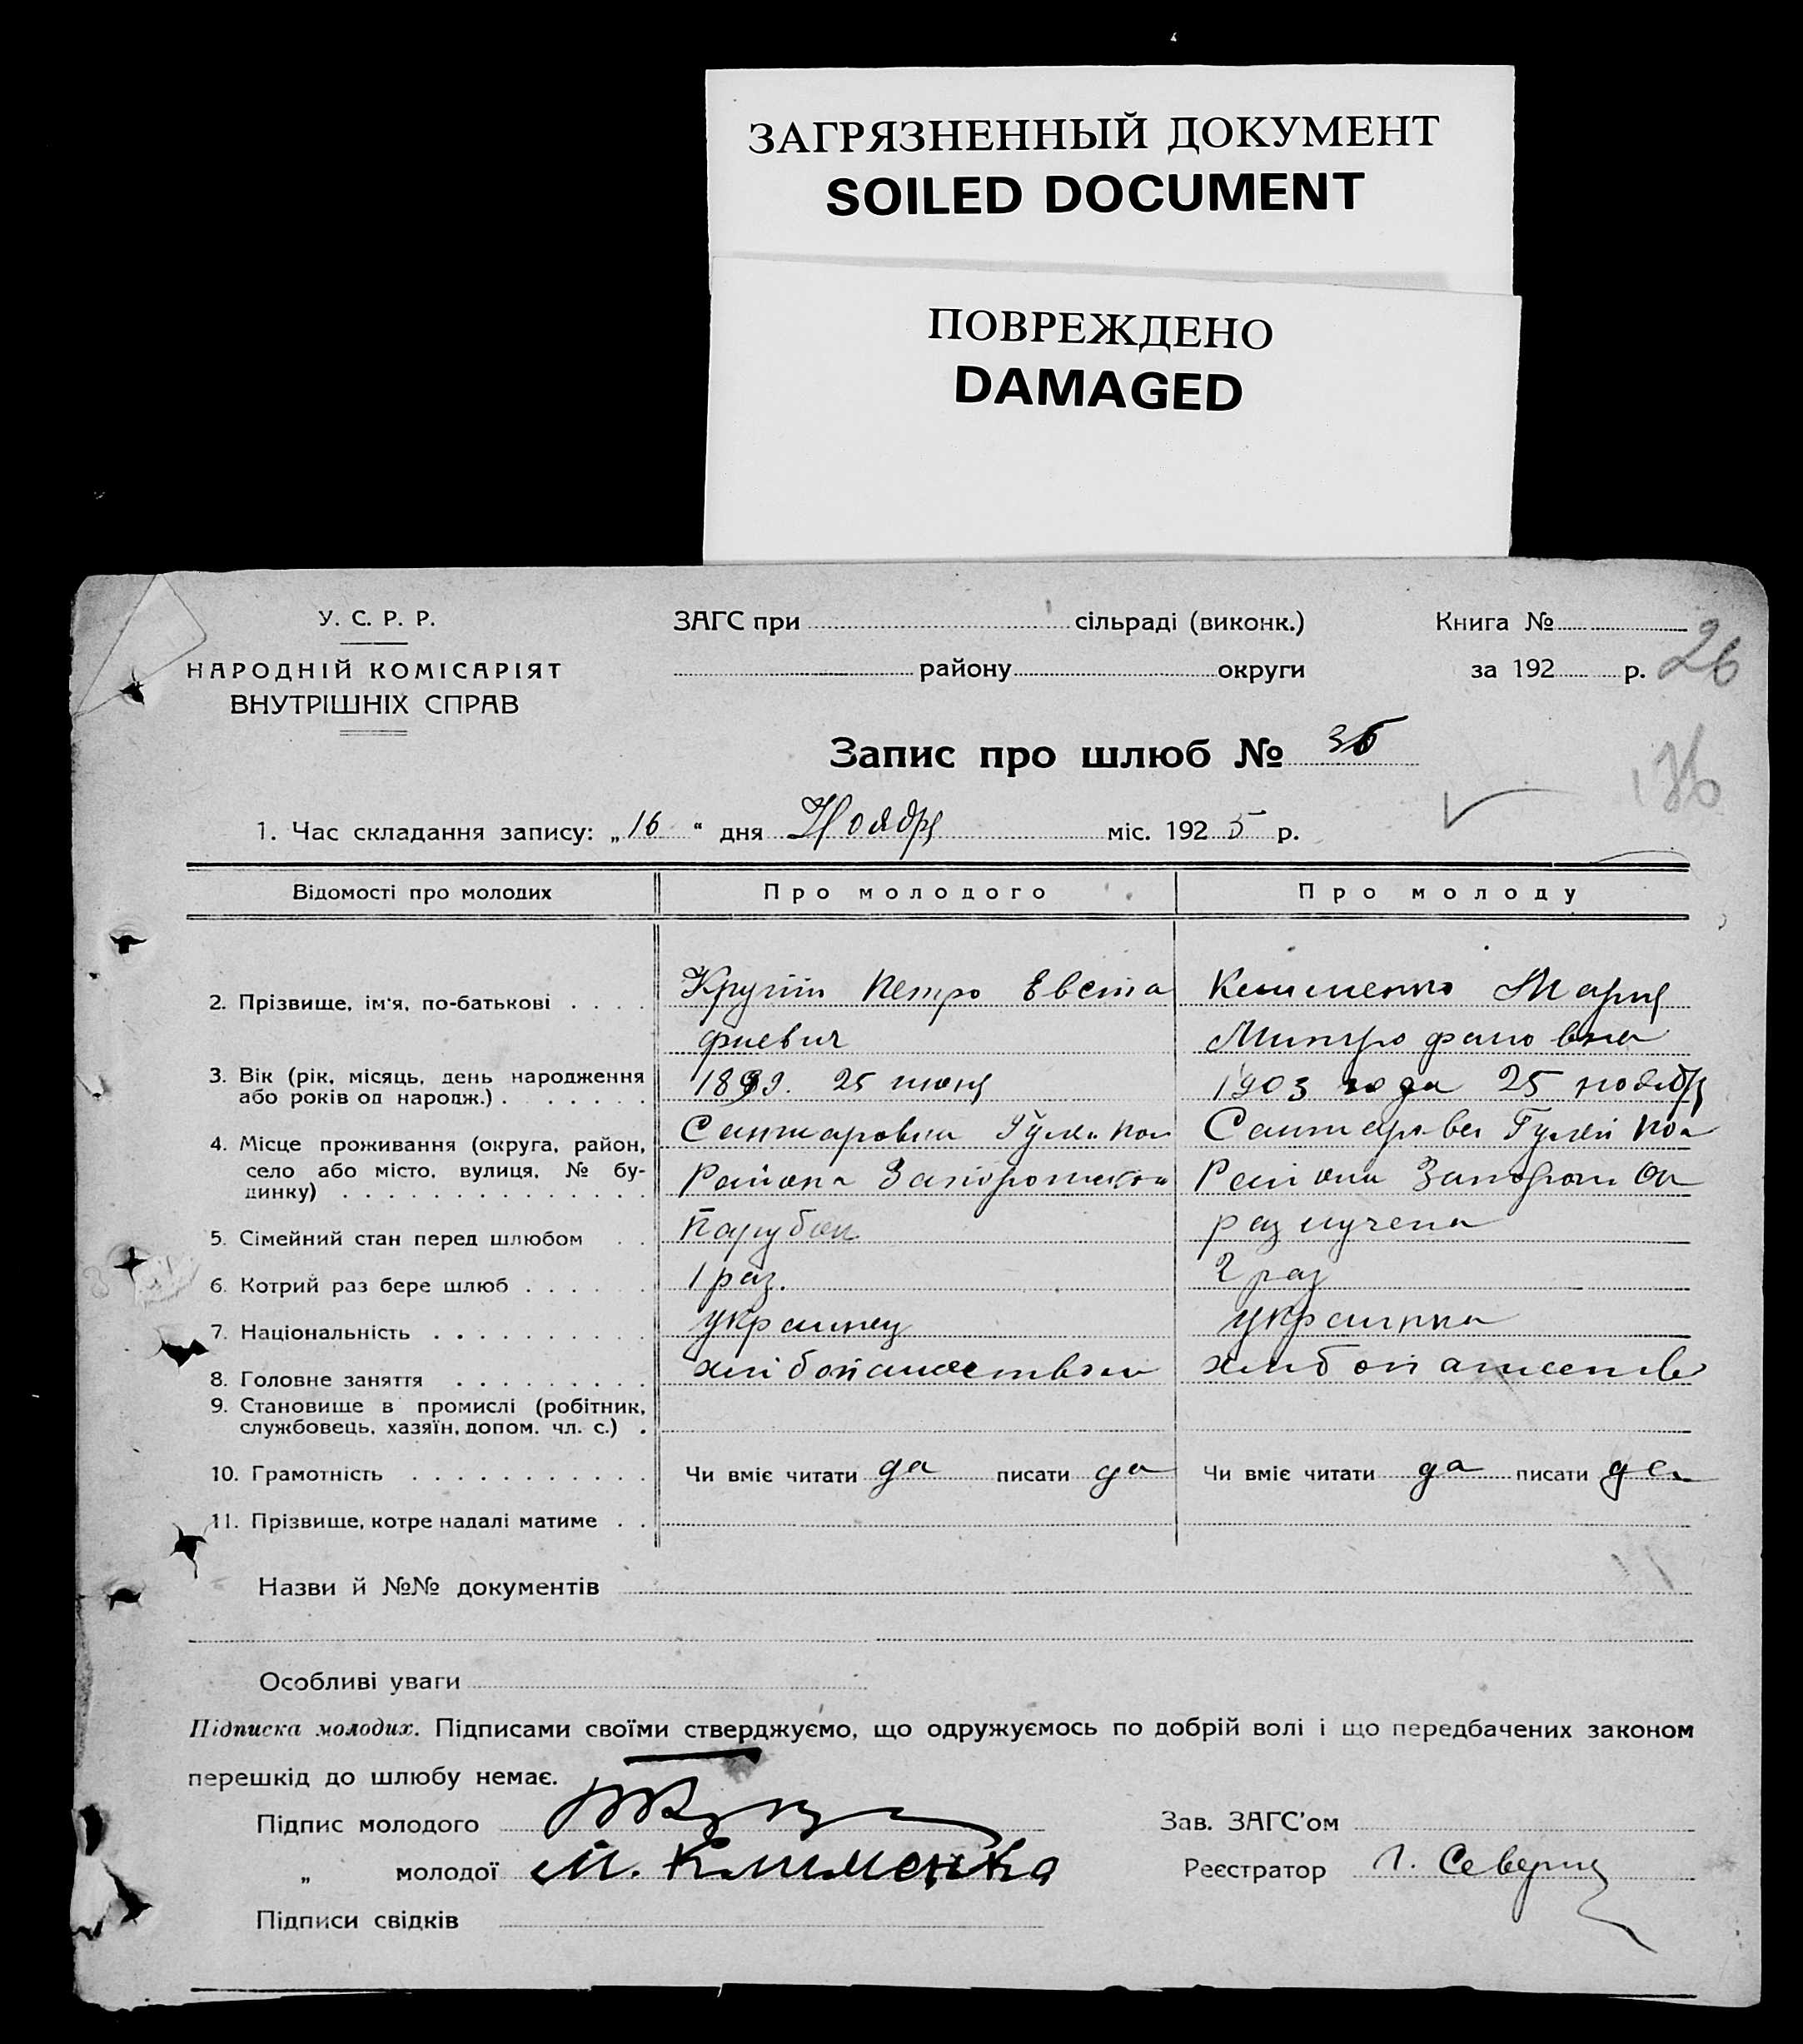 ЗАГРЯЗНЕННЫЙ ДОКУМЕНТ
SOILED DOCUMENT
ПОВРЕЖДЕНО
DAMAGED
У. С. Р. Р.
НАРОДНІЙ КОМІСАРІЯТ
ВНУТРІШНІХ СПРАВ
ЗАГС при сільраді (виконк.)
району округи
Книга №
за 192 р.
26
Запис про шлюб №
136
1. Час складання запису: „16“ дня Ноября міс. 1925 р.
Відомості про молодих Про молодого Про молоду
2. Прізвище, ім'я, по-батькові . . . . Петро Евста Клименко Мария
фиевич Митрофановна
3. Вік (рік, місяць, день народження 25 июня 1903 года 25 ноября
або років од народж.) . . . . . . .
4. Місце проживання (округа, район, Гуляй пол Гуляй пол
село або місто, вулиця, № бу- Района Района
динку) . . . . . . . . . . . . . .
5. Сімейний стан перед шлюбом . . Парубок разлучена
6. Котрий раз бере шлюб . . . . . . 1 раз. 2 раз
7. Національність . . . . . . . . . . украинец украинка
8. Головне заняття . . . . . . . . .
9. Становище в промислі (робітник,
службовець, хазяїн, допом. чл. с.) .
10. Грамотність . . . . . . . . . . . Чи вміє читати да писати да Чи вміє читати да писати да
11. Прізвище, котре надалі матиме . .
Назви й №№ документів
Особливі уваги
Підписка молодих. Підписами своїми стверджуємо, що одружуємось по добрій волі і що передбачених законом
перешкід до шлюбу немає.
Підпис молодого Зав. ЗАГС'ом
„ молодої М. Клименко Реєстратор
Підписи свідків